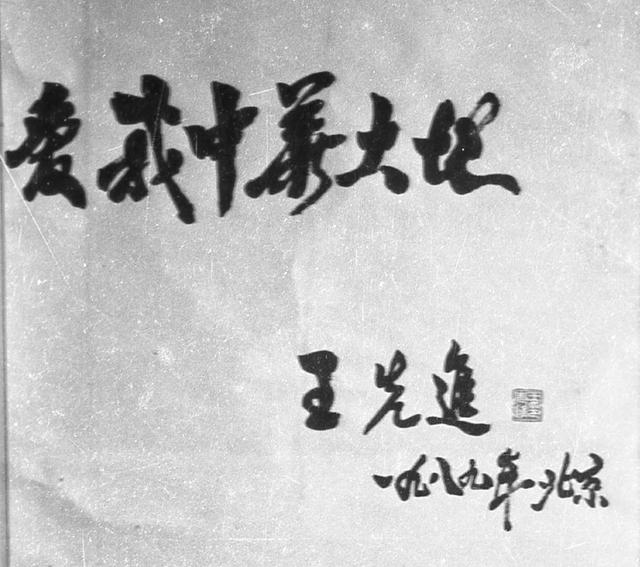 愛我中華大地
王先進
一九八九年北京